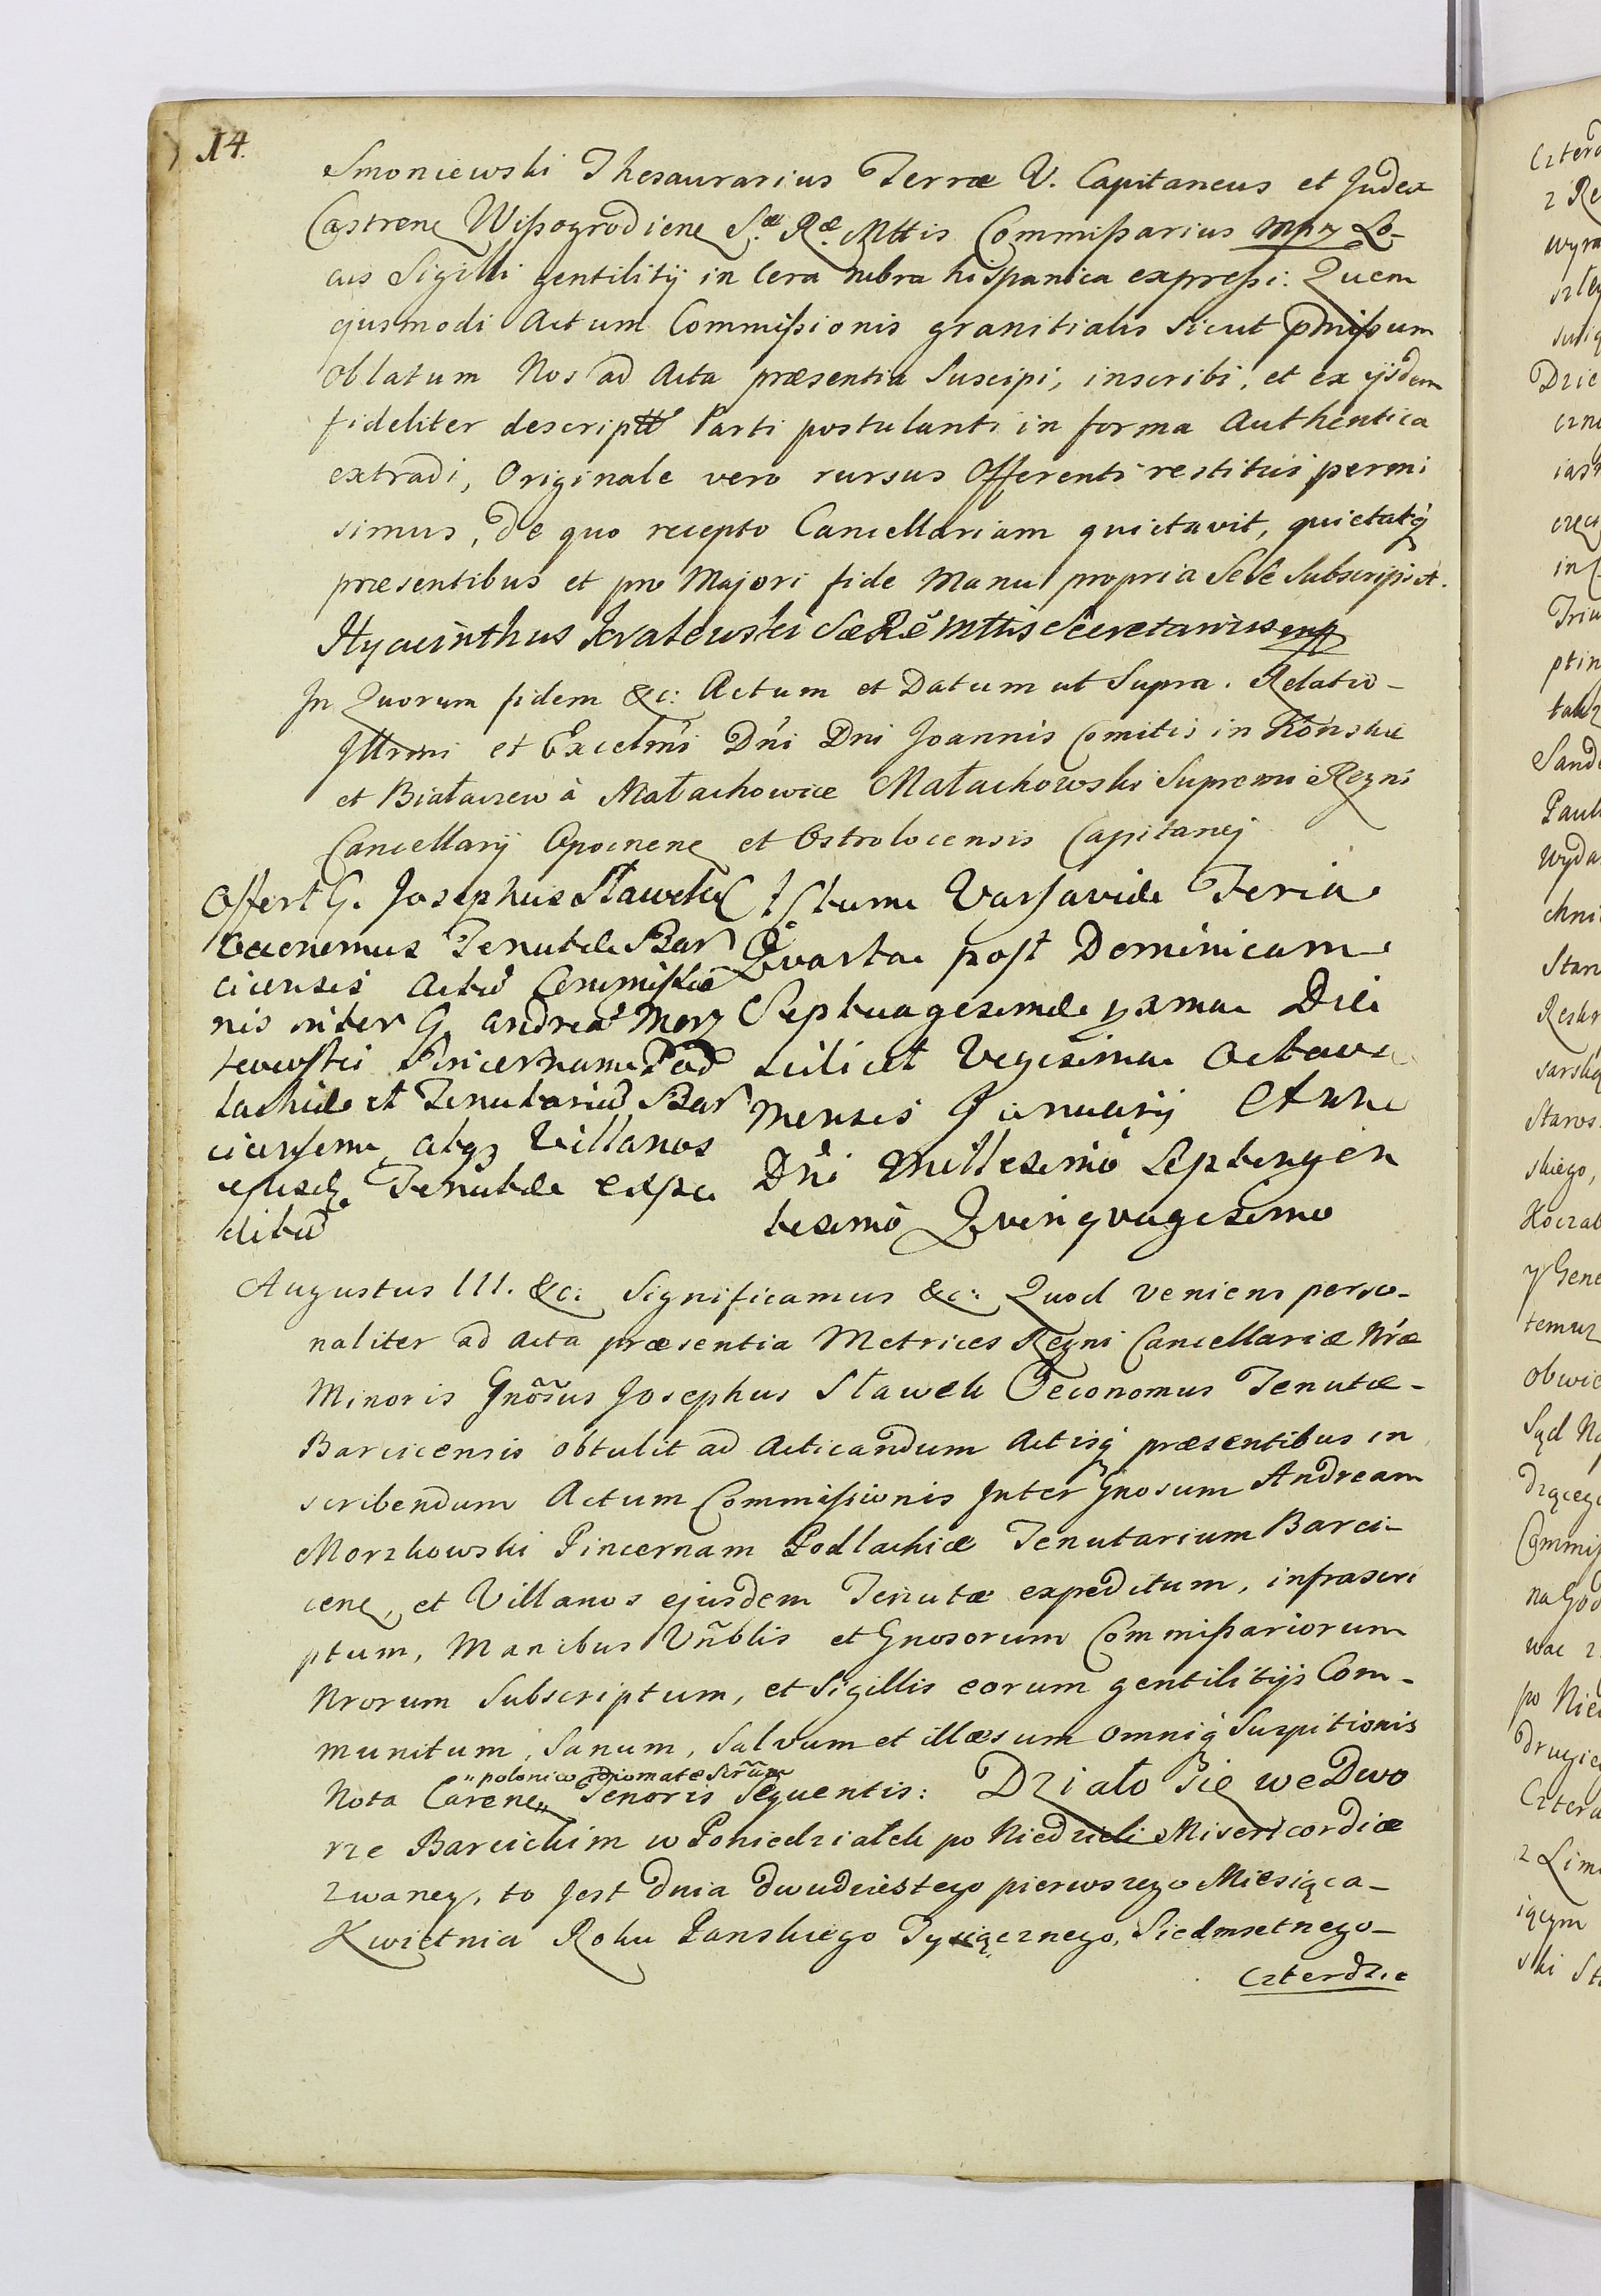 14.
Smoniewski Thesaurarius Terræ V. Capitaneus et Judex
Castren Wißogrodien S.æ R.æ Mttis Commißarius mpr Lo-
cus Sigilli gentilitij in Cera rubra hispanica expreßi: Quem
ejusmodi Actum Commißionis granitialis sicut pmißum
oblatum Nos ad Acta præsentia Suscipi, inscribi, et ex ijsdem
fideliter descriptt Parti postulanti in forma Authentica
extradi, Originale vero rursus Offerenti restitui permi
simus, de quo recepto Cancellariam quietavit, quietatq
præsentibus et pro Majori fide Manu propria Se se Subscripsit.
Hyacinthus Kvatewski SæRæ Mttis Secretarius mp
In Quorum fidem &c: Actum et Datum ut Supra. Relatio-
Jllmi et Excelmi Dni Dni Joannis Comitis in Konskie
et Białaczew à Małachowice Małachowski Supremi Regni
Cancellarij Opocnen et Ostrolocensis Capitanej
Offert G. Josephus Sławek
Oeconomus Tenutæ Bar
cicensis Actu Commißio
nis inter G. Andrea Morz
kowski Pincernam Pod
lachiæ et Tenutariu Bar
cicensem, atqz Villanos
ejusdz Tenutæ expe
ditu
Actum Varsaviæ Feria
Qvarta post Dominicam
Septuagesimæ pxma Die
scilicet Vigesima Octava
Mensis Januarij Anno
Dni Millesimo Septingen
tesimo Qvinqvagesimo
Augustus III. &c: Significamus &c: Quod veniens perso-
naliter ad Acta præsentia Metrices Regni Cancellariæ Nræ
Minoris Gnosus Josephus Sławek Oeconomus Tenutæ-
Barcicensis obtulit ad Acticandum Actisq præsentibus in
scribendum Actum Commißionis Inter Gnosum Andream
Morzkowski Pincernam Podlachiæ Tenutarium Barci-
cen, et Villanos ejusdem Tenutæ expeditum, infrascri
ptum, Manibus Vnblis et Gnosorum Commißariorum
Nrorum Subscriptum, et Sigillis eorum gentilitijs Com-
munitum, Sanum, Salvum et illæsum omniq Suspitionis
"polonico idiomate Scrum
Nota Caren" Tenoris Sequentis: Działo się we Dwo
rze Barcickim w Poniedziałek po Niedzieli Misericordiæ
zwaney, to Jest Dnia dwudziestego pierwszego Miesiąca-
Kwietnia Roku Panskiego Tysiącznego, Siedmsetnego-
Czterdzie